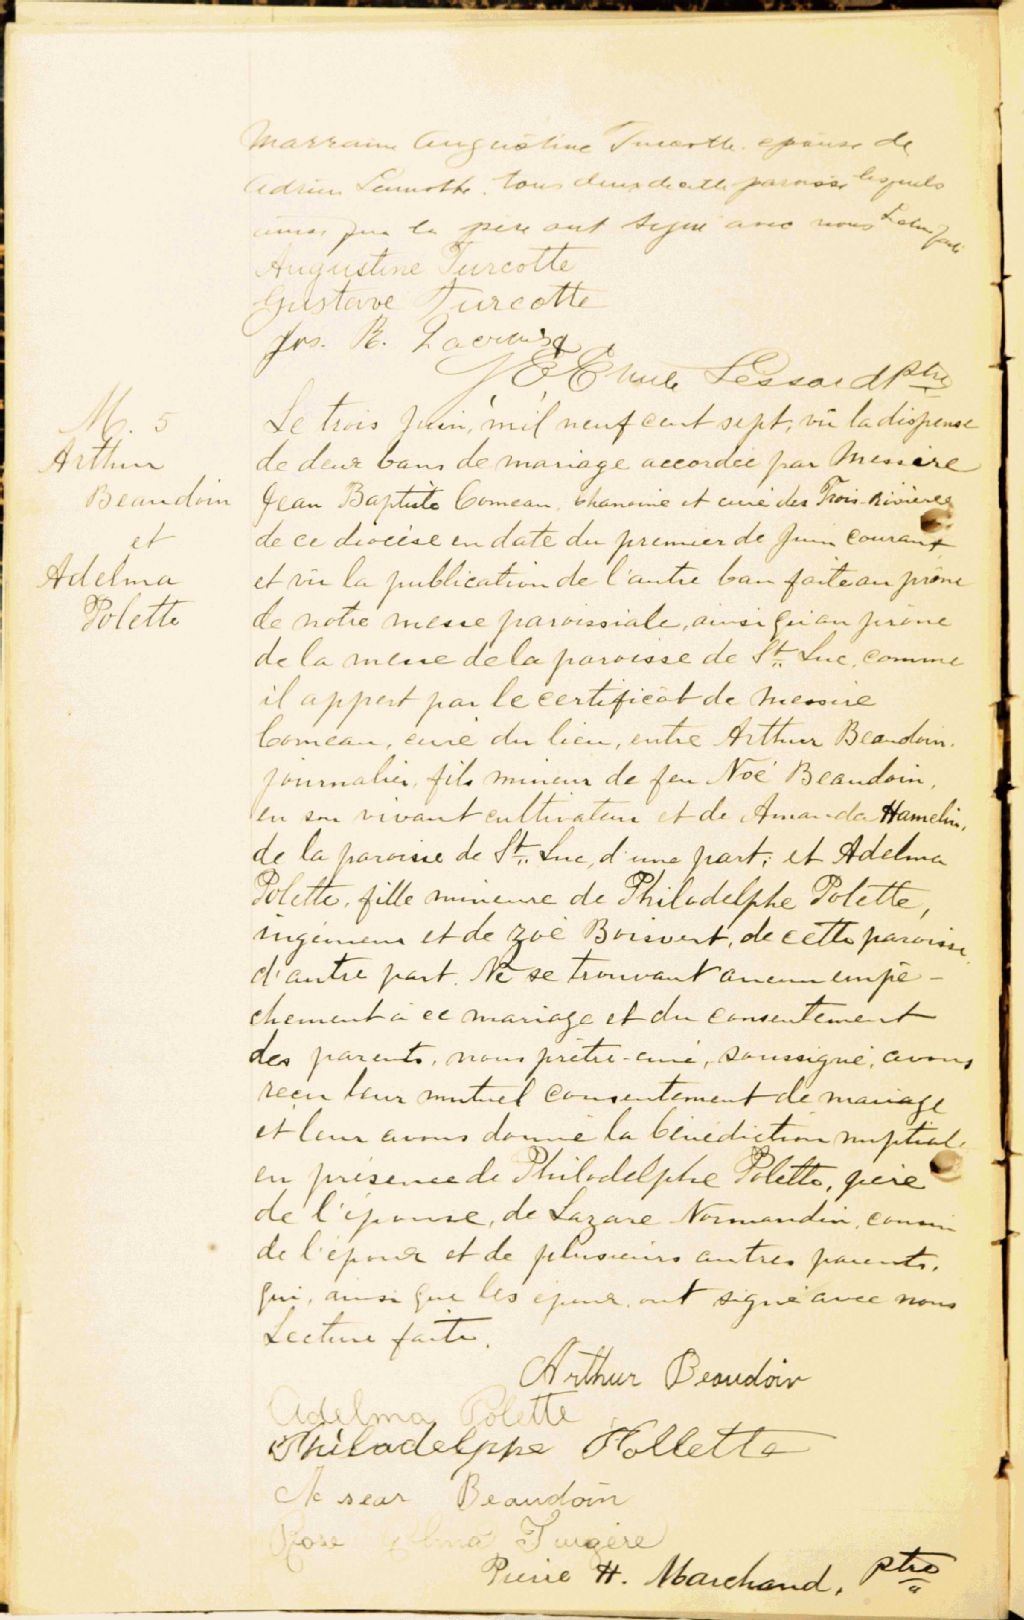 Marraine Augustine Turcotte épouse de
Adrien Lamothe, tous deux de cette paroisse lesquels
ainsi que le père ont signé avec nous Lecture faite
Augustine Turcotte
Gustave Turcotte
Jos. R. Lacroix
J E Emile Lessard ptre
M. 5
Arthur
Beaudoin
et
Adelma
Polette
Le trois Juin, mil neuf cent sept, vû la dispense
de deux bans de mariage accordée par Messire
Jean Baptiste Comeau, chanoine et curé des Trois-Rivières
de ce diocèse en date du premier de Juin courant
et vû la publication de l'autre ban faite au prône
de notre messe paroissiale, ainsi qu'au prône
de la messe de la paroisse de St. Luc, comme
il appert par le certificat de Messire
Comeau, curé du lieu, entre Arthur Beaudoin,
journalier, fils mineur de feu Noé Beaudoin,
en son vivant cultivateur et de Amanda Hamelin,
de la paroisse de St. Luc, d'une part; et Adelma
Polette, fille mineure de Philadelphe Polette,
ingénieur et de Zoé Boisvert, de cette paroisse,
d'autre part. Ne se trouvant aucun empê-
chement à ce mariage et du consentement
des parents, nous prêtre-curé, soussigné, avons
reçu leur mutuel consentement de mariage
et leur avons donné la bénédiction nuptiale
en présence de Philadelphe Polette, père
de l'épouse, de Lazare Normandin, cousin
de l'époux et de plusieurs autres parents,
qui, ainsi que les époux, ont signé avec nous
Lecture faite.
Arthur Beaudoin
Adelma Polette
Philadelppe Pollette
Beaudoin
Rose Alma Turgère
Pierre H. Marchand, ptre